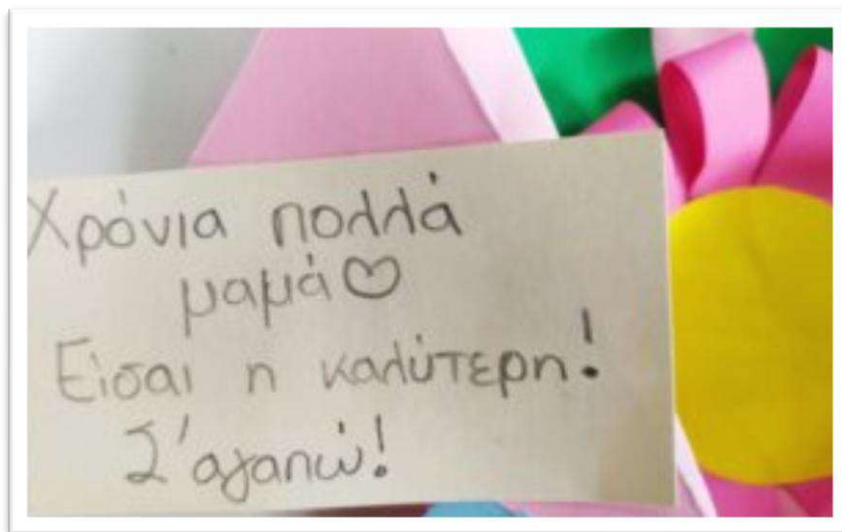 Χρόνια πολλά
μαμά♡
Είσαι η καλύτερη!
Σ'αγαπώ!